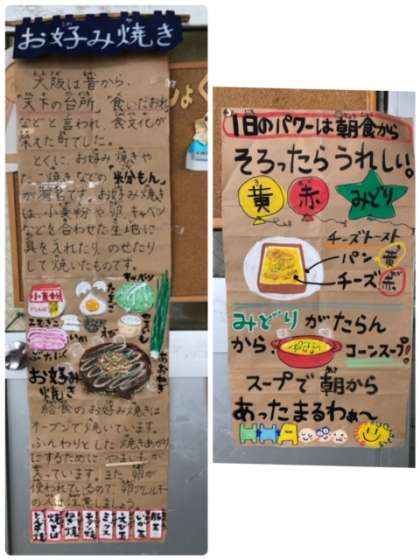 お好み焼き
大阪は昔から、
天下の台所、食いだおれ
などと言われ、食文化が
栄えた町でした。
とくに、お好み焼きや
たこ焼きなどの「粉もん」
が有名です。お好み焼き
は、小麦粉や卵、キャベツ
などを合わせた生地に
具を入れたり、のせたり
して焼いたものです。
キャベツ
小麦粉
ぶたにく
やまいも
お好み
焼き
給食のお好み焼きは
オーブンで焼いています。
ふんわりとした焼きあがり
にするために、やまいもが
入っています。また、卵が
使われているので、卵アレルギー
1日のパワーは朝食から
そろったらうれしい。
黄
赤
みどり
チーズトースト
パン 黄
チーズ 赤
みどりがたらん
から、
コーンスープ!
スープで朝から
あったまるわぁ〜